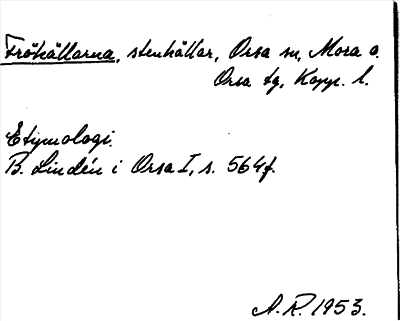 Fröhällarna, stenhällar, Orsa sn, Mora o.
Orsa tg, Kopp. l.
Etymologi.
B. Lindén i Orsa I, s. 564f.
A. R. 1953.